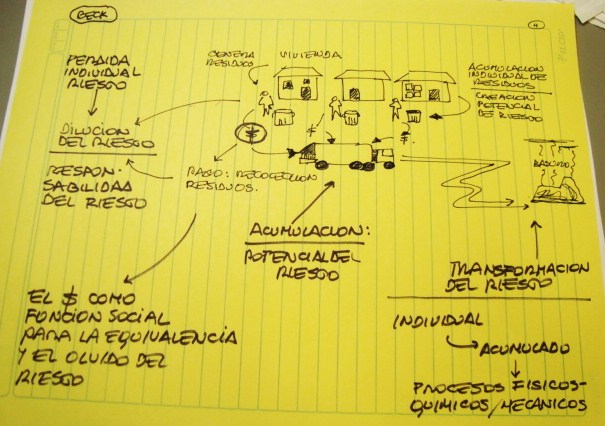 BECK
4
PERDIDA
INDIVIDUAL
RIESGO
DILUCION
DEL RIESGO
RESPON-
SABILIDAD
DEL RIESGO
GENERA
RESIDUOS
VIVIENDA
ACUMULACION
INDIVIDUAL DE
RESIDUOS
CREACION
POTENCIAL
DE RIESGO
$
$
$
PAGO: RECOLECCION
RESIDUOS.
BASURERO
ACUMULACION:
POTENCIAL DEL
RIESGO
TRANSFORMACION
DEL RIESGO
INDIVIDUAL
ACUMULADO
PROCESOS FISICOS-
QUIMICOS/MECANICOS
EL $ COMO
FUNCION SOCIAL
PARA LA EQUIVALENCIA
Y EL OLVIDO DEL
RIESGO